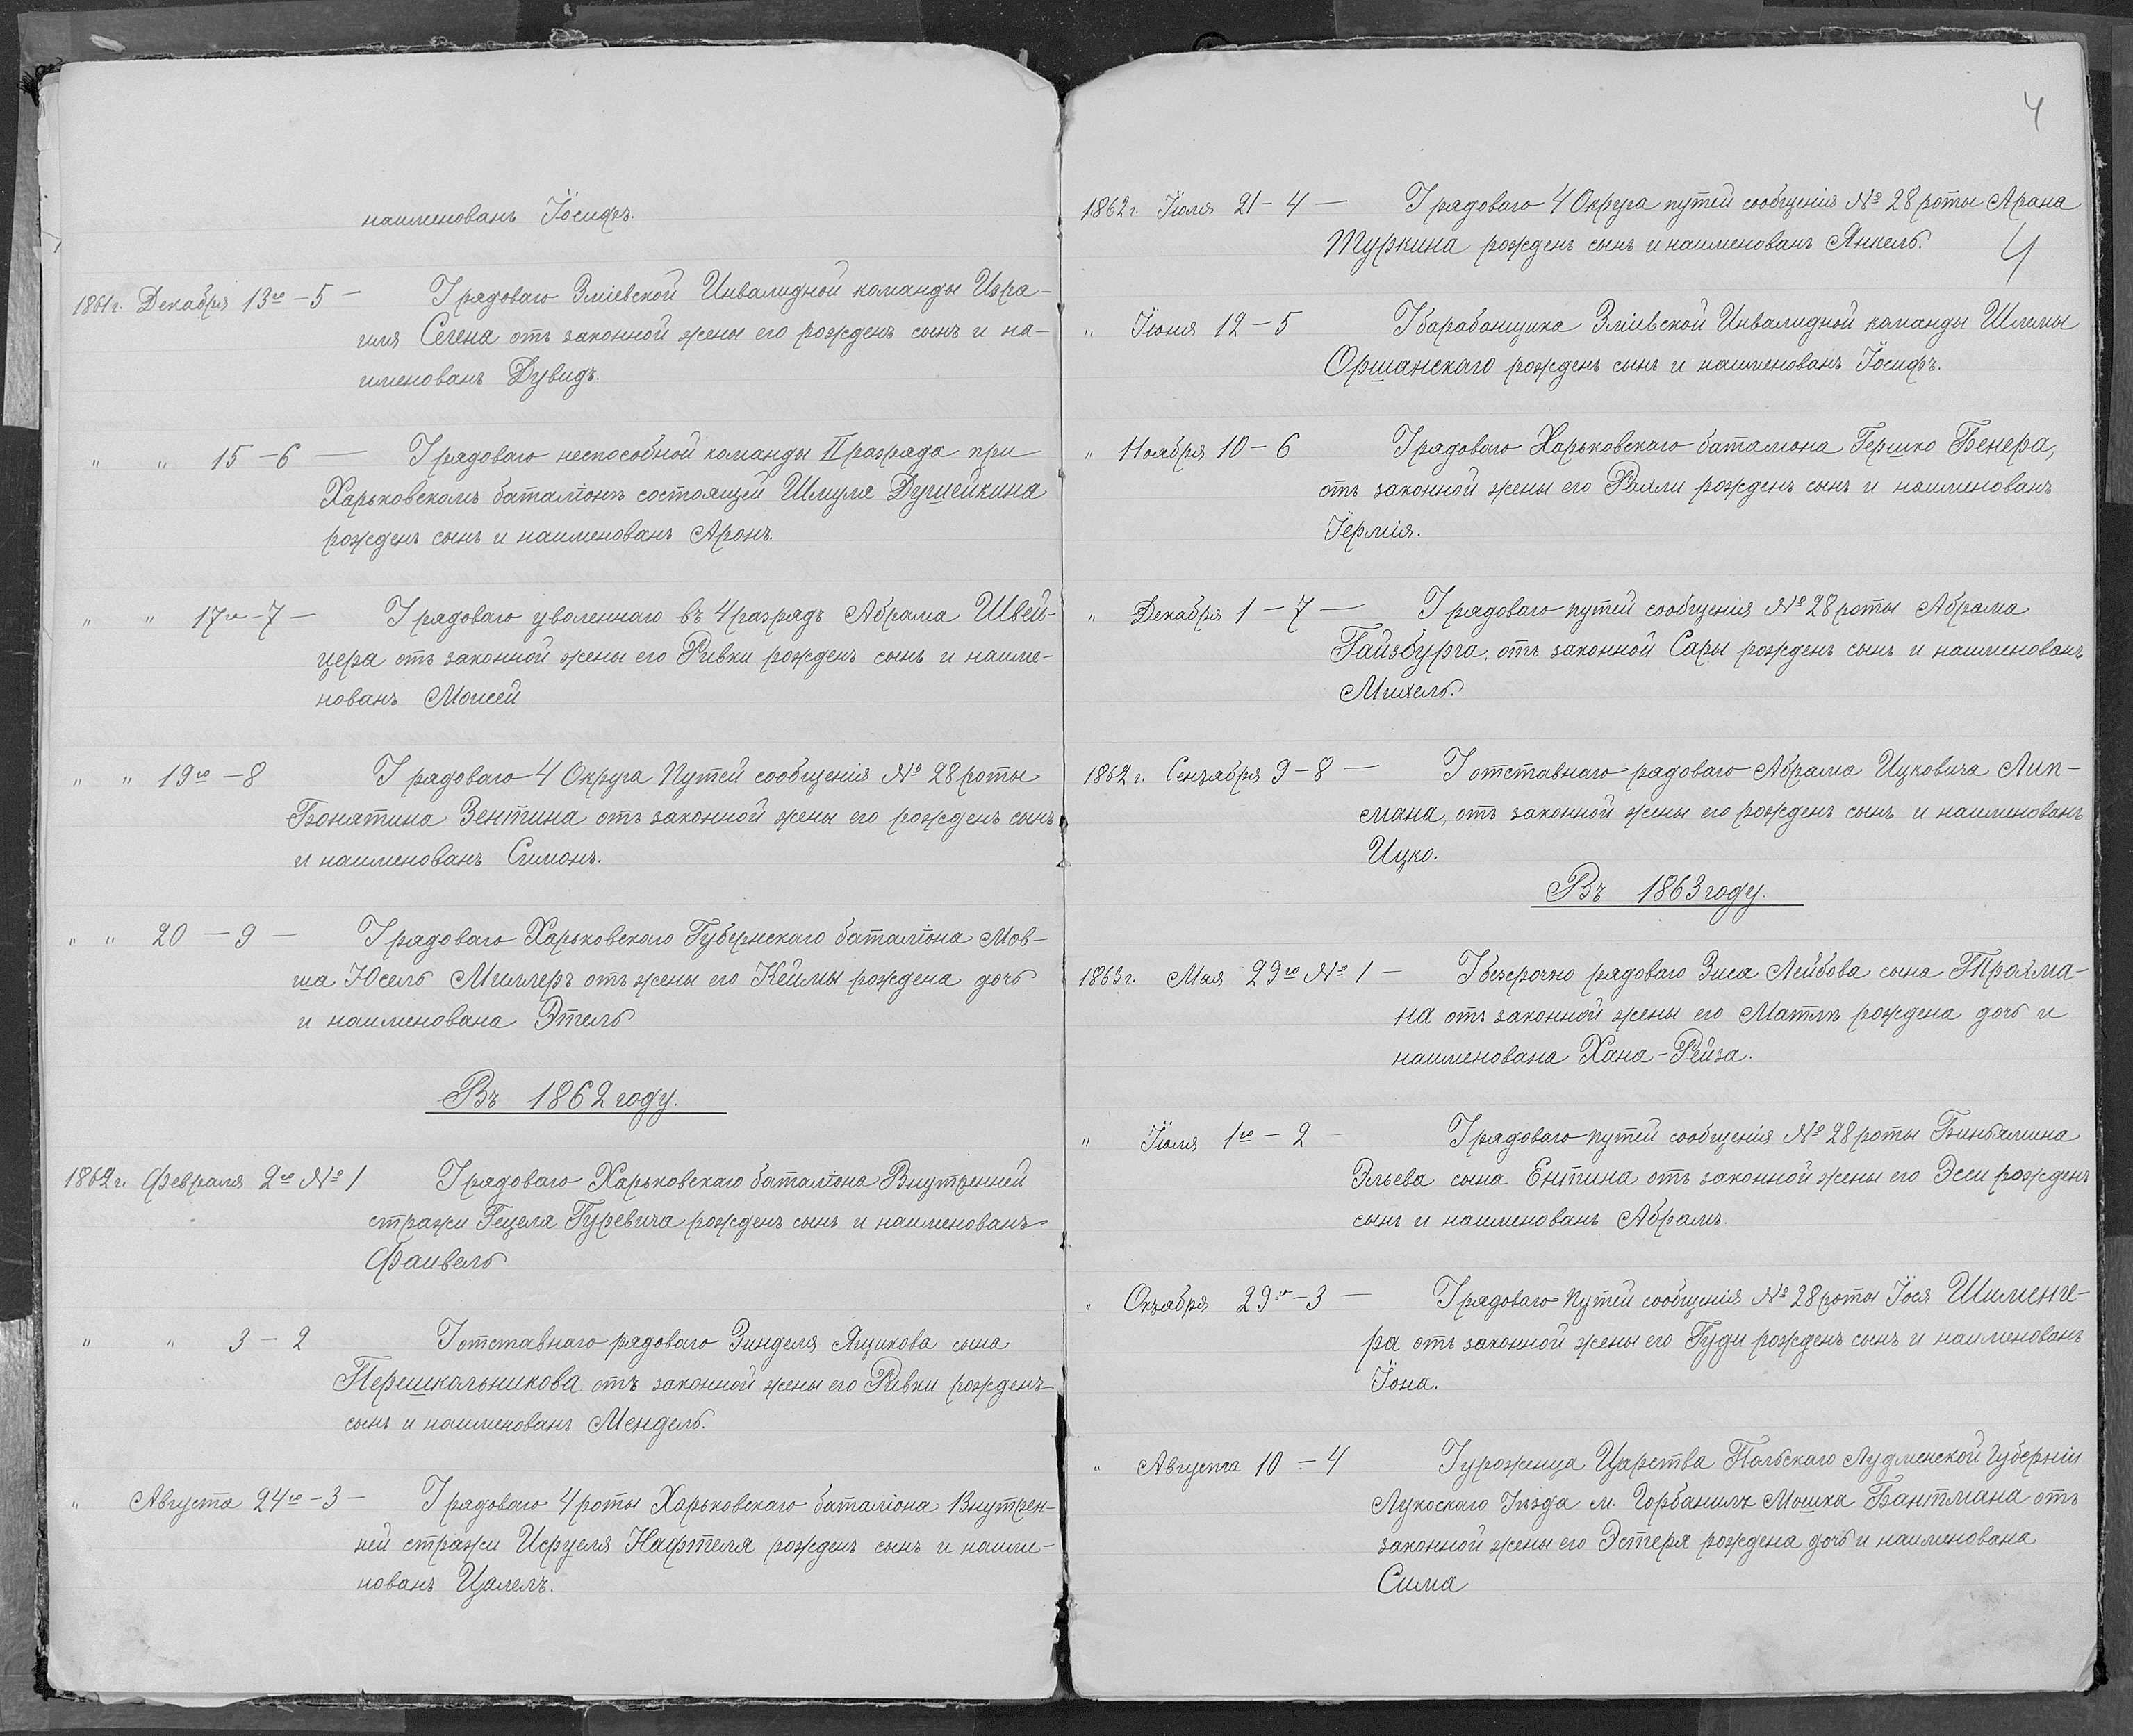 наименованъ Іосифъ.
1861 г. Декабря 13го – 5 – У рядоваго Зміевской Инвалидной команды Изра-
иля Сегена отъ законной жены его рожденъ сынъ и на-
именованъ Дувидъ.
" " 15 – 6 — У рядоваго неспособной команды II разряда при
Харьковскомъ баталіонѣ состоящей Шмуля Душейкина
рожденъ сынъ и наименованъ Аронъ.
" " 17го – 7 – У рядоваго уволеннаго въ 4 разрядъ Абрама Швей-
цера отъ законной жены его Ривки рожденъ сынъ и наиме-
нованъ Моисей
" " 19го – 8 У рядоваго 4 Округа Путей сообщенія № 28 роты
Бонятина Зентина отъ законной жены его рожденъ сынъ
и наименованъ Симонъ.
" " 20 – 9 – У рядоваго Харьковскаго Губернскаго баталіона Мов-
ша Юсель Миллеръ отъ жены его Кеймы рождена дочь
и наименована Этель
Въ 1862 году.
1862 г. Февраля 2го № 1 У рядоваго Харьковскаго баталіона Внутренней
стражи Гецеля Гуревича рожденъ сынъ и наименованъ
Фаивель
" " 3 – 2 У отставнаго рядоваго Зинделя Яцикова сына
Перешкольникова отъ законной жены его Ривки рожденъ
сынъ и наименованъ Мендель.
" Августа 24го – 3 – У рядоваго 4 роты Харьковскаго баталіона Внутрен-
ней стражи Исруеля Нафтеля рожденъ сынъ и наиме-
нованъ Цалелъ.
4
1862 г. Іюля 21 – 4 — У рядоваго 4 Округа путей сообщенія № 28 роты Арана
Туркина рожденъ сынъ и наименованъ Янкель.
4
" Іюня 12 – 5 У барабанщика Зміевской Инвалидной команды Шлемы
Оршанскаго рожденъ сынъ и наименованъ Іосифъ.
" Ноября 10 – 6 У рядоваго Харьковскаго баталиона Гершко Бенера,
отъ законной жены его Рахли рожденъ сынъ и наименованъ
Іермія.
" Декабря 1 – 7 — У рядоваго путей сообщенія № 28 роты Абрама
Гайзбурга, отъ законной Сары рожденъ сынъ и наименованъ
Михель.
1862 г. Сентября 9 – 8 — У отставнаго рядоваго Абрама Ицковича Лип-
мана, отъ законной жены его рожденъ сынъ и наименованъ
Ицко.
Въ 1863 году.
1863 г. Мая 29го № 1 – У безсрочно рядоваго Зиса Лейбова сына Трахма-
на отъ законной жены его Матлѣ рождена дочь и
наименована Хана-Рейза.
" Іюля 1го – 2 У рядоваго путей сообщенія № 28 роты Биньямина
Эльева сына Ентина отъ законной жены его Эсси рожденъ
сынъ и наименованъ Абрамъ.
" Октября 29го – 3 — У рядоваго Путей сообщенія № 28 роты Іося Шименге-
ра отъ законной жены его Гуди рожденъ сынъ и наименованъ
Іона.
" Августа 10 – 4 У уроженца Царства Польскаго Лудменской Губерніи
Лукоскаго Уѣзда м. Горбанилъ Мошка Бантмана отъ
законной жены его Эстеря рождена дочь и наименована
Сима